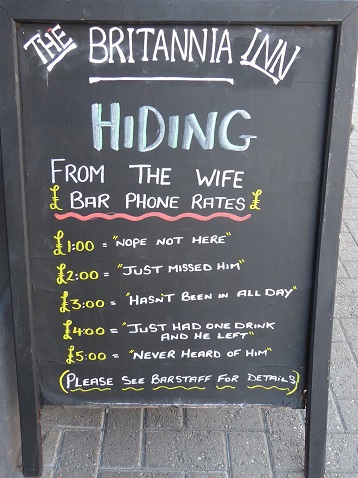 THE BRITANNIA INN
HiDING
FROM THE WIFE
£ BAR PHONE RATES £
£1:00 = "NOPE NOT HERE"
£2:00 = "JUST MISSED HIM"
£3:00 = "HASN'T BEEN IN ALL DAY"
£4:00 = "JUST HAD ONE DRINK
AND HE LEFT"
£5:00 = "NEVER HEARD OF HIM"
(PLEASE SEE BARSTAFF FOR DETAILS)